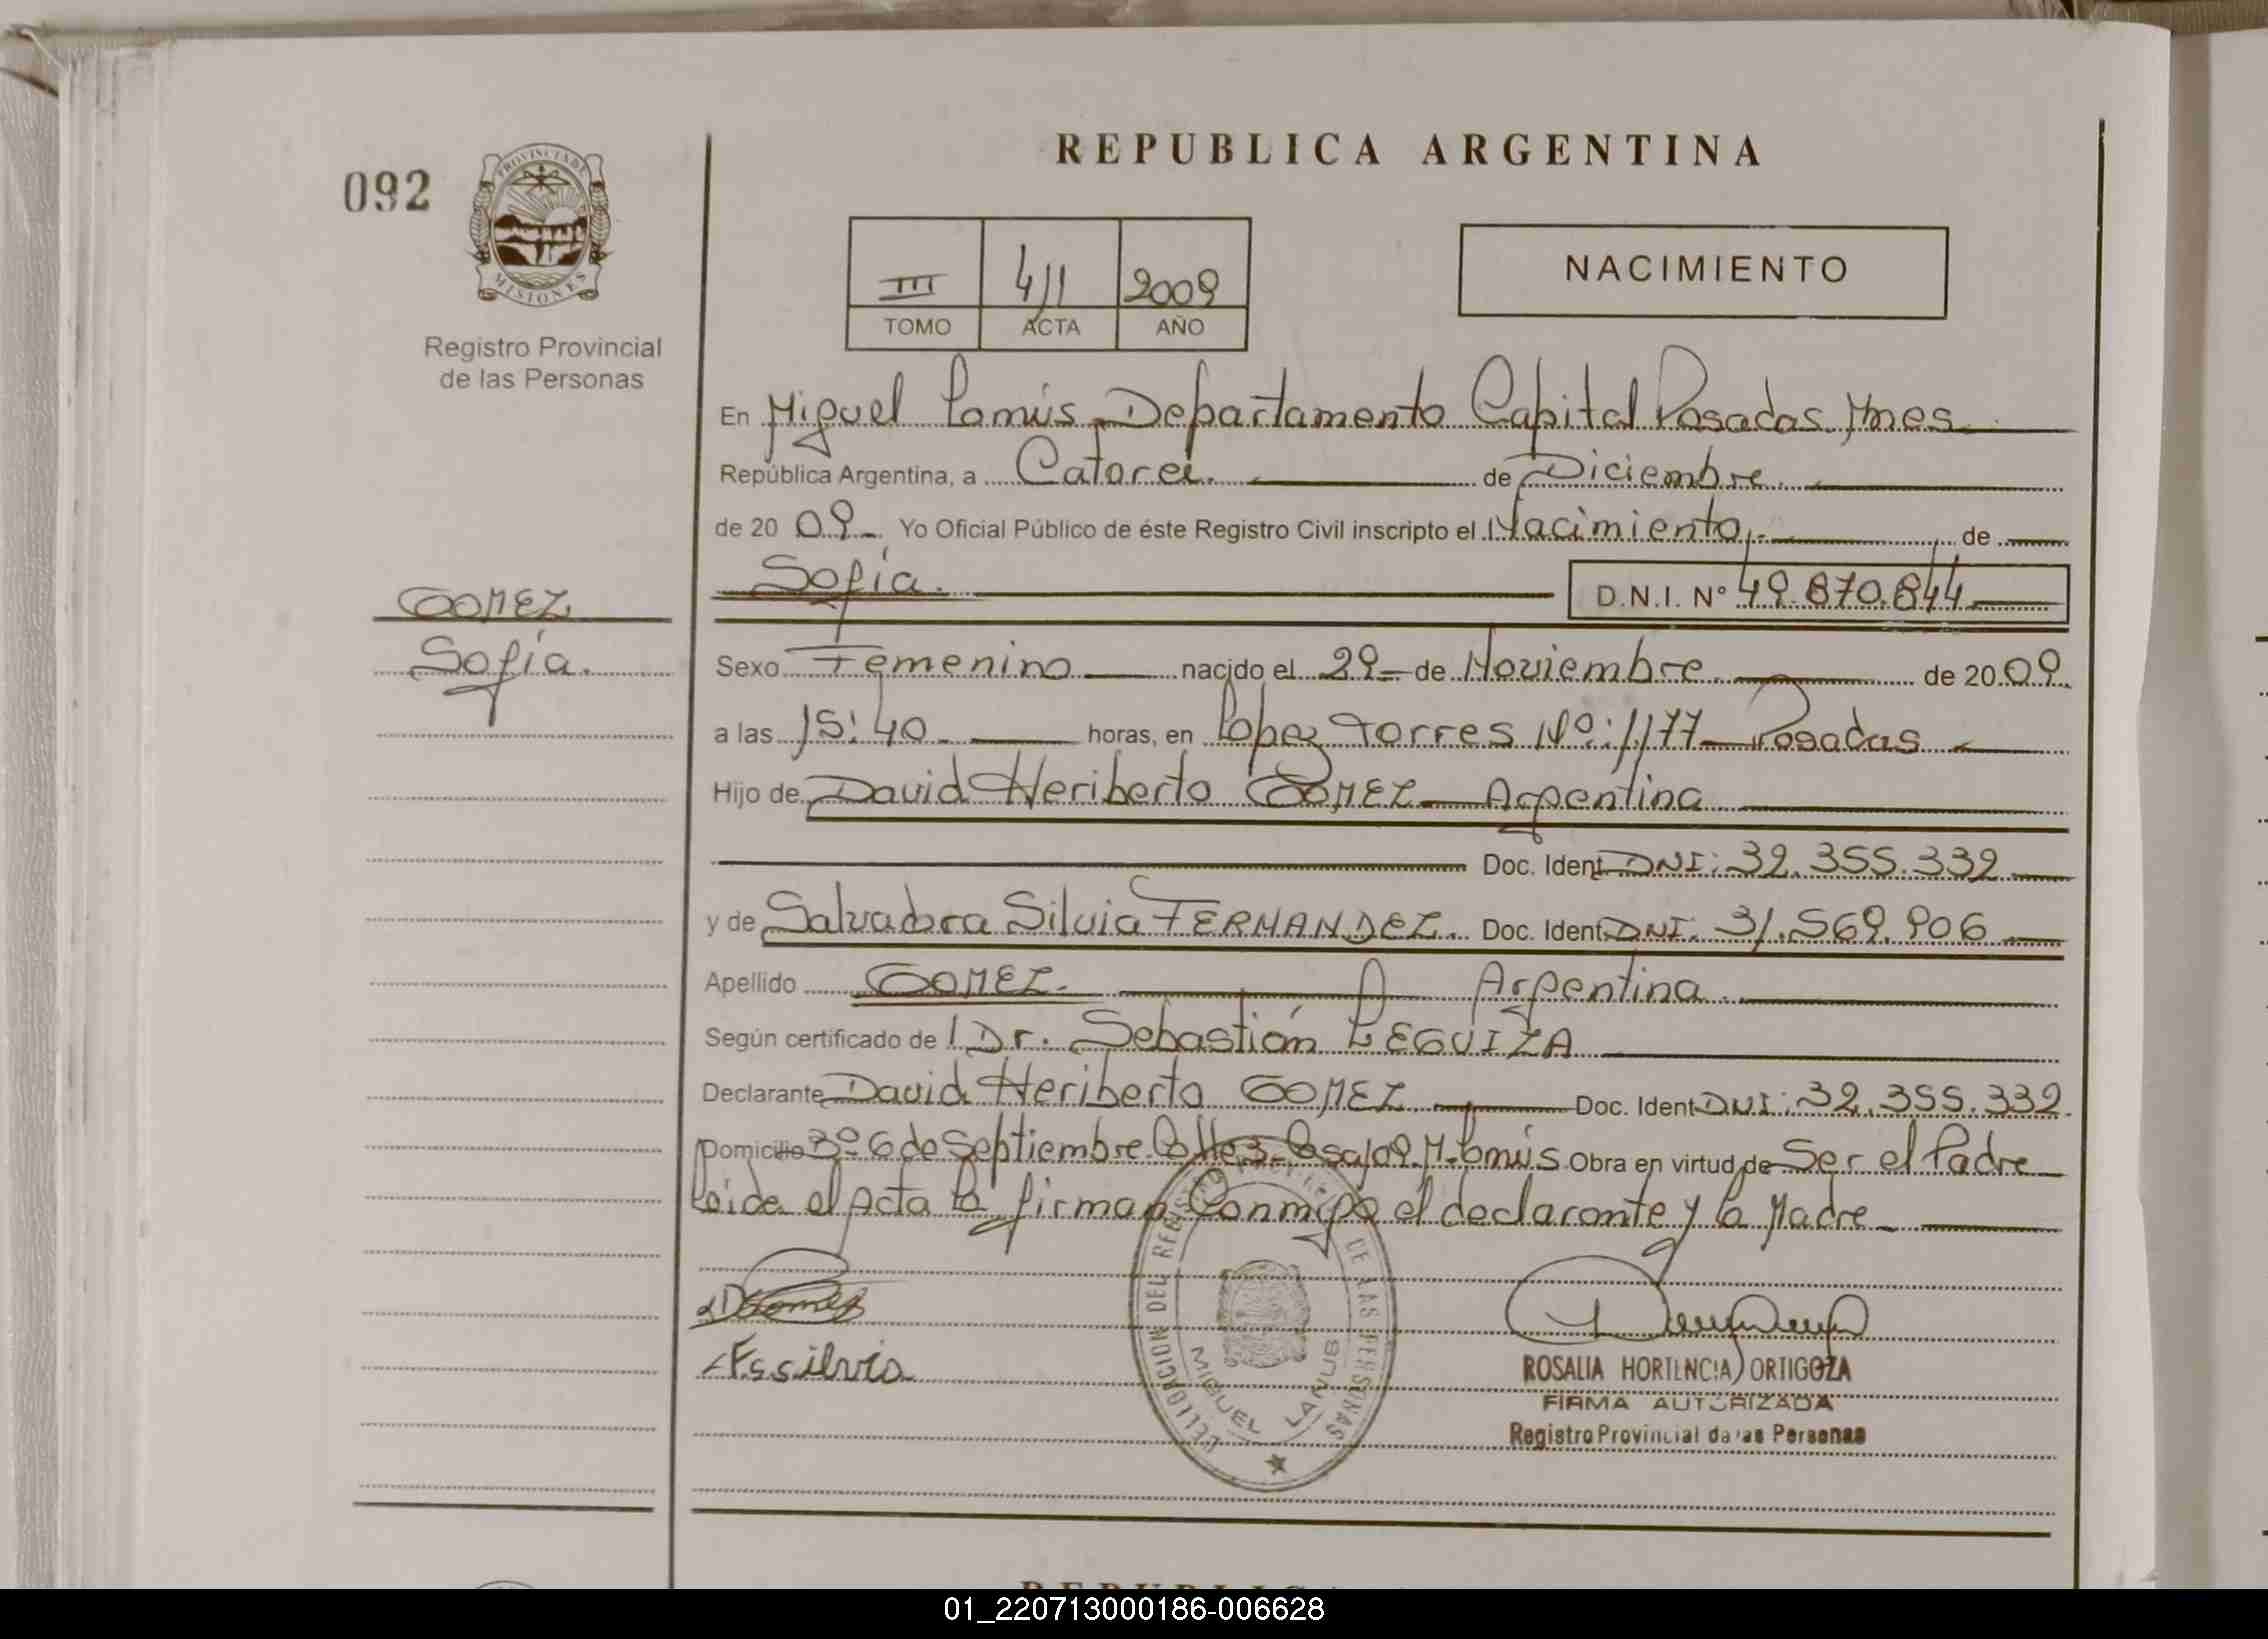 REPUBLICA ARGENTINA
092
PROVINCIA DE
MISIONES
Registro Provincial
de las Personas
III 411 2009
TOMO ACTA AÑO
NACIMIENTO
En Miguel Lanús Departamento Capital Posadas Mnes
República Argentina, a Catorce. de Diciembre.
de 20 09 Yo Oficial Público de éste Registro Civil inscripto el Nacimiento de
Sofía. D.N.I. Nº 49.870.844
GOMEZ
Sofía.
Sexo Femenino nacido el 29 de Noviembre de 20 09.
a las 15:40 horas, en Lopez Torres Nº: 1177 Posadas
Hijo de David Heriberto GOMEZ Argentina
Doc. Ident. DNI: 32.355.332
y de Salvadora Silvia FERNANDEZ. Doc. Ident. DNI: 31.569.906
Apellido GOMEZ. Argentina
Según certificado de Dr. Sebastión LEGUIZA
Declarante David Heriberto GOMEZ Doc. Ident. DNI: 32.355.332.
Domicilio Bº 6 de Septiembre Calle 3 Casa 109. M. Lanús Obra en virtud de Ser el Padre
Leida el Acta la firman Conmigo el declarante y la Madre
F.s silvia
DELEGACION DEL REGISTRO DE LAS PERSONAS
MIGUEL LANUS
ROSALIA HORTENCIA ORTIGOZA
FIRMA AUTORIZADA
Registro Provincial de las Personas
01_220713000186-006628